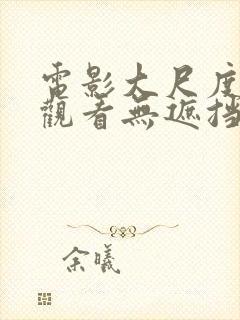 電影大尺度
觀看無遮挡
余曦